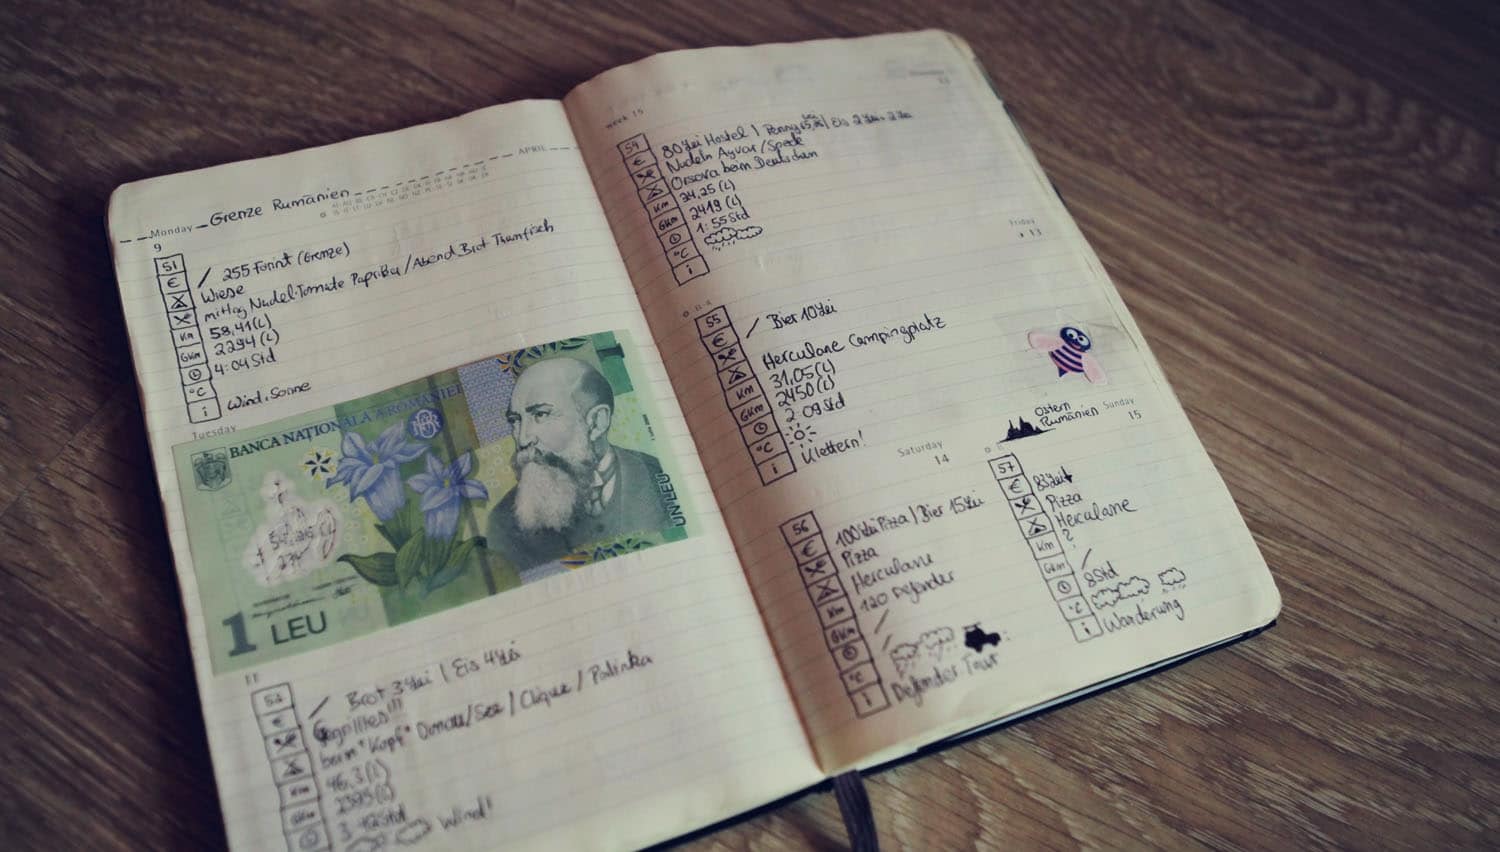 APRIL
Grenze Rumänien
Monday
9
51
€ / 255 Forint (Grenze)
Wiese
mittag Nudel-Tomate Paprika / Abend Brot Thunfisch
Km 58,41 (L)
GKm 2294 (L)
4:04 Std
°C
i Wind, Sonne
Tuesday
BANCA NAȚIONALĂ A ROMÂNIEI
1 LEU
UN LEU
11
€ / Brot 3 Lei | Eis 4 Lei
Gegrilltes!!!
beim "Kopf" Donau/See / Clique / Palinka
Km 46,3 (L)
GKm 2395 (L)
Wind!
week 15
54
€ 80 Lei Hostel | Penny | Eis 2 Lei
Nudeln Ayvar / Speck
Orsova beim Deutschen
Km 24,25 (L)
GKm 2419 (L)
1:55 Std
°C
i
Friday
13
55
€ / Bier 10 Lei
Herculane Campingplatz
Km 31,05 (L)
GKm 2450 (L)
2:09 Std
°C
i Klettern!
Saturday
14
56
€ 100 Lei Pizza | Bier 15 Lei
Pizza
Herculane
Km 120 Defender
GKm /
°C
i Defender Tour
Ostern
Rumänien
Sunday
15
57
€ 83 Lei
Pizza
Herculane
Km ?
GKm /
8 Std
°C
i Wanderung